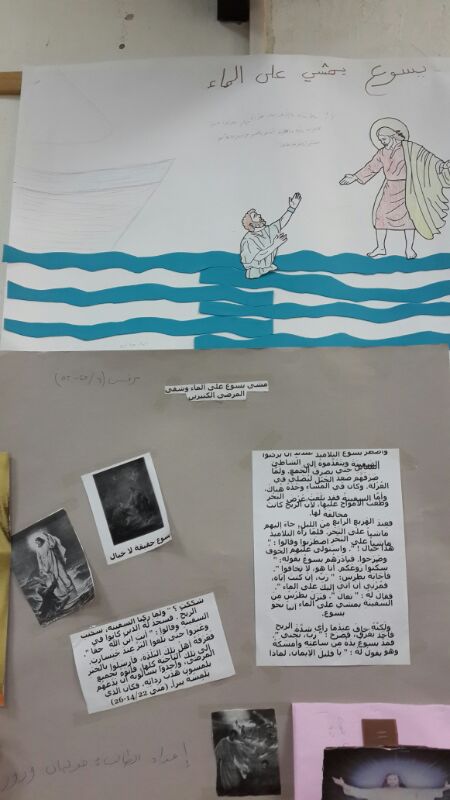 يسوع يمشي على الماء
مشى يسوع على الماء وشفى
المرضى الكثيرين
واضطر يسوع التلاميذ
السفينة ويتقدموه إلى الشاطئ
المقابل حتى يصرف الجمع. ولما
صرفهم صعد الجبل ليصلي في
العزلة. وكان في المساء وحده هناك.
وأما السفينة فقد بلغت عرض البحر
وطغت الأمواج عليها، لأن الريح كانت
مخالفة لها.
فعند الهزيع الرابع من الليل، جاء إليهم
ماشيا على البحر. فلما رآه التلاميذ
ماشيا على البحر اضطربوا وقالوا: "
هذا خيال! ". واستولى عليهم الخوف
وصرخوا. فبادرهم يسوع بقوله: "
سكنوا روعكم. أنا هو، لا تخافوا".
فأجابه بطرس: " رب، إن كنت إياه،
فمرني أن آتي إليك على الماء".
فقال له: " تعال". فنزل بطرس من
السفينة يمشي على الماء آتيا نحو
يسوع.
ولكنه خاف عندما رأى شدة الريح
فأخذ يغرق، فصرخ: " رب، نجني".
فمد يسوع يده من ساعته وأمسكه
وهو يقول له: " يا قليل الإيمان، لماذا
يسوع حقيقة لا خيال
شككت؟ ". ولما ركبا السفينة، سكنت
الريح. فسجد له الذين كانوا في
السفينة وقالوا: " أنت ابن الله حقا".
وعبروا حتى بلغوا البر عند جناسرت.
فعرفه أهل تلك البلدة. فأرسلوا بالخبر
إلى تلك الناحية كلها، فأتوه بجميع
المرضى، وأخذوا يسألونه أن يدعهم
يلمسون هدب ردائه. فكان الذي
يلمسه يبرأ. (متى 14/22-26)
إعداد الطالب: